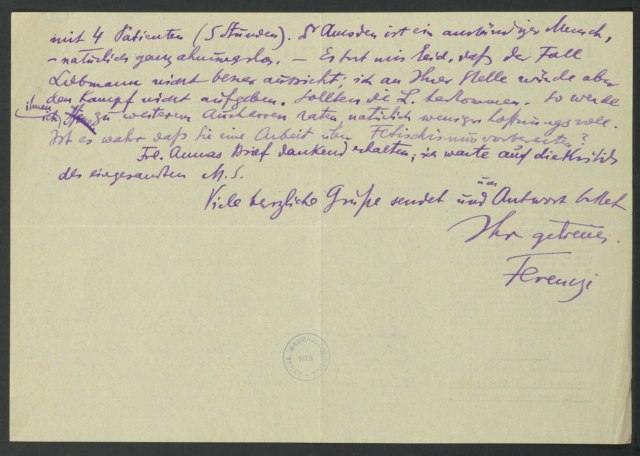 mit 4 Patienten (5 Stunden). Dr Amsden ist ein anständiger Mensch,
– natürlich ganz ahnungslos. – Es tut mir leid, daß der Fall
Liebmann nicht besser aussieht; ich an Ihrer Stelle würde aber
den Kampf nicht aufgeben. Sollten Sie L. bekommen, so werde
ich ihnen zu weiterem Ausharren raten, natürlich weniger hoffnungsvoll.
Ist es wahr daß Sie eine Arbeit über Fetischismus vorbereiten?
Frl. Annas Brief dankend erhalten; ich warte auf die Kritik
des eingesandten M.S.
Viele herzliche Grüße sendet und um Antwort bittet
Ihr getreuer
Ferenczi
WIEN